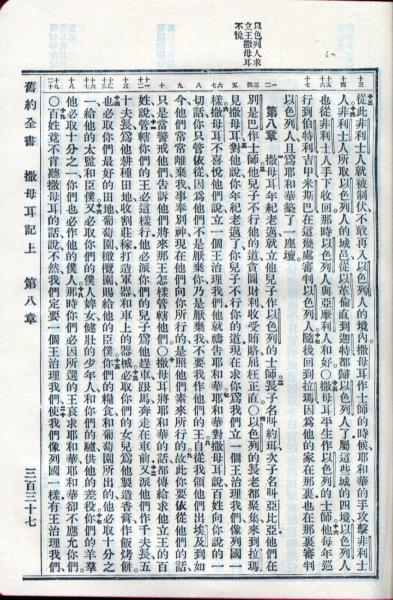 以色列人求
立王撒母耳
不悅
從此非利士人就被制伏不敢再入以色列人的境內撒母耳作士師的時候耶和華的手攻擊非利士
人非利士人所取以色列人的城邑從以革倫直到迦特都歸以色列人了屬這些城的四境以色列人
也從非利士人手下收回那時以色列人與亞摩利人和好○撒母耳平生作以色列的士師他每年巡
行到伯特利吉甲米斯巴在這幾處審判以色列人隨後回到拉瑪因為他的家在那裏也在那裏審判
以色列人且為耶和華築了一座壇
第八章 撒母耳年紀老邁就立他兒子作以色列的士師長子名叫約珥次子名叫亞比亞他們在
別是巴作士師他兒子不行他的道貪圖財利收受賄賂屈枉正直○以色列長老都聚集來到拉瑪
見撒母耳對他說你年紀老邁了你兒子不行你的道現在求你為我們立一個王治理我們像列國一
樣撒母耳不喜悅他們說立一個王治理我們他就禱告耶和華耶和華對撒母耳說百姓向你說的一
切話你只管依從因為他們不是厭棄你乃是厭棄我不要我作他們的王自從我領他們出埃及到如
今他們常常離棄我事奉別神現在他們向你所行的是照他們素來所行的故此你要依從他們的話
只是當警戒他們告訴他們將來那王怎樣管轄他們○撒母耳將耶和華的話都傳給求他立王的百
姓說管轄你們的王必這樣行他必派你們的兒子為他趕車跟馬奔走在車前又派他們作千夫長五
十夫長為他耕種田地收割莊稼打造軍器和車上的器械必取你們的女兒為他製造香膏作飯烤餅
也必取你們最好的田地葡萄園橄欖園賜給他的臣僕你們的糧食和葡萄園所出的他必取十分之
一給他的太監和臣僕又必取你們的僕人婢女健壯的少年人和你們的驢供他的差役你們的羊羣
他必取十分之一你們也必作他的僕人那時你們必因所選的王哀求耶和華耶和華卻不應允你們
○百姓竟不肯聽撒母耳的話說不然我們定要一個王治理我們使我們像列國一樣有王治理我們
舊約全書 撒母耳記上 第八章 三百三十七